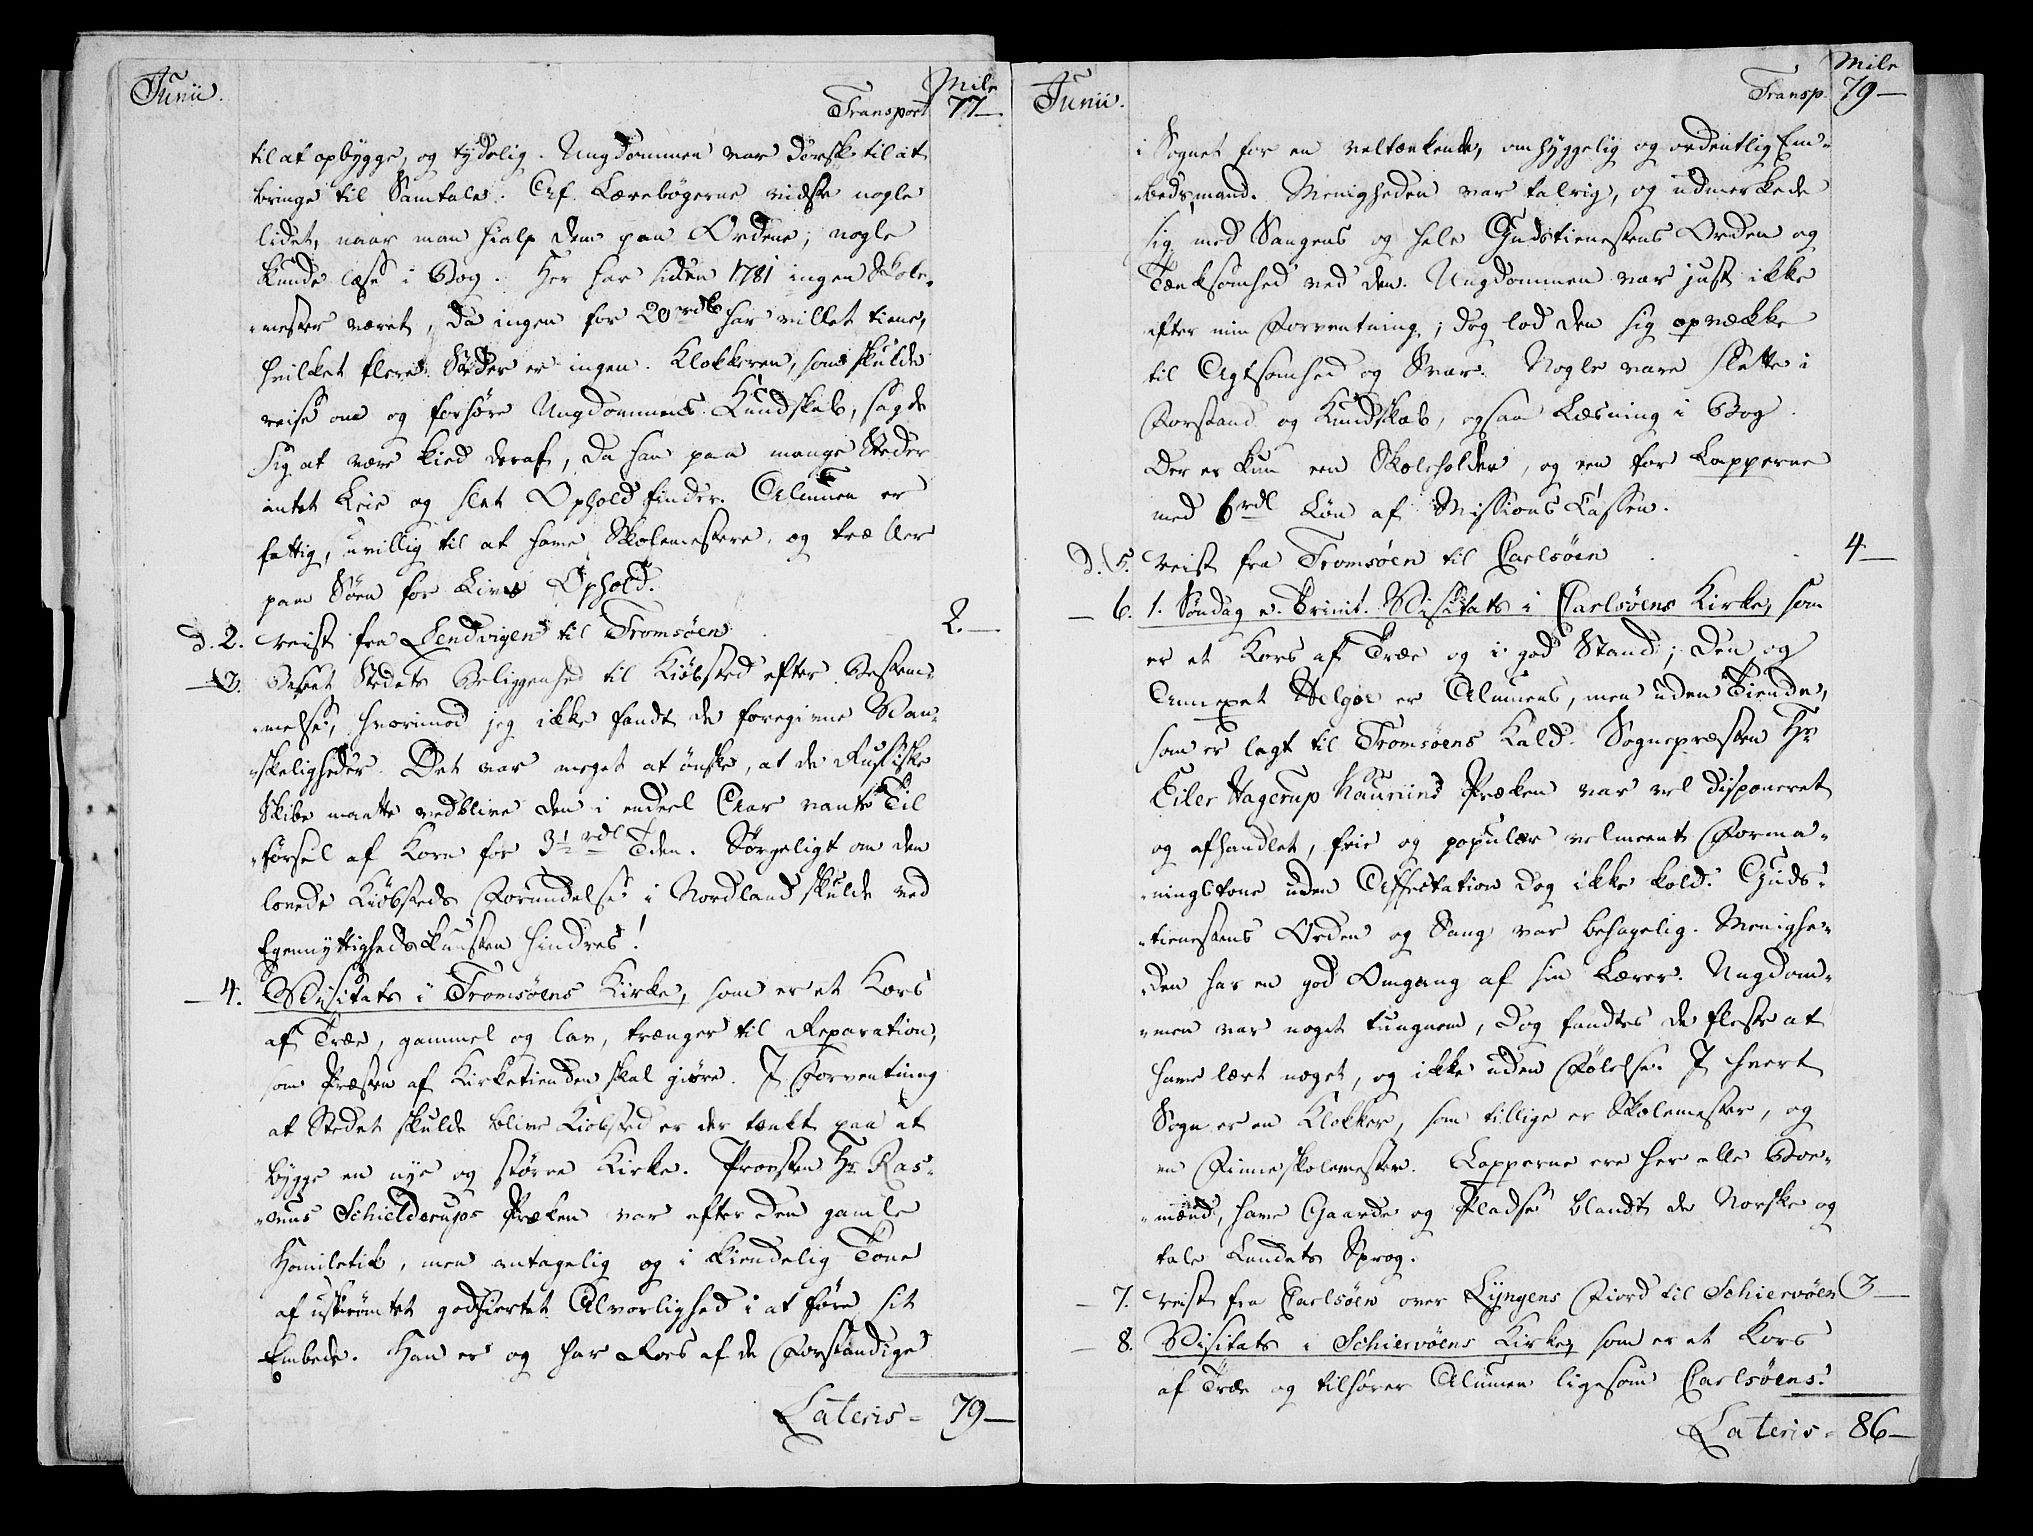 Junii.
Mile
Transport 77 —
til at opbygge, og tydelig. Ungdommen var dorsk til at
bringe til Samtale. Af Lærebögerne vidste nogle
lidet, naar man hialp dem paa Ordene; nogle
kunde læse i Bog. Her har siden 1781 ingen Skole-
mester været, da ingen for 20 rdl har villet tiene,
hvilket flere Steder er ingen. Klokkeren, som skulde
reise om og forhöre Ungdommens Kundskab, sagde
sig at være kied deraf, da han paa mange Steder
intet Leie og slet Ophold finder. Almuen er
fattig, uvillig til at have Skolemestere, og træller
paa Söen for Livs Ophold.
d. 2. reist fra Lendvigen til Tromsöen 2. —
— 3. Beseet Stedets Beliggenhed til Kiöbsted efter Bestem-
melse, hvorimod jeg ikke fandt de foregivne Van-
skeligheder. Det var meget at önske, at de Russiske
Skibe maatte vedblive den i endeel Aar vante Til
försel af Korn for 3½ rdl Tden. Sörgeligt om den
lovede Kiöbsteds Forundelse i Nordland skulde ved
Egennyttighedskunster hindres!
— 4. Visitats i Tromsöens Kirke, som er et Kors
af Træe, gammel og lav, trænger til Reparation,
som Præsten af Kirketienden skal giöre. I Forventning
at Stedet skulde blive Kiöbsted er der tænkt paa at
bygge en nye og större Kirke. Provsten Hr Ras-
mus Schielderups Præken var efter den gamle
Homiletik, men antagelig og i kiendelig Tone
af uskrömtet godhiertet Alvorlighed i at före sit
Embede. Han er og har Roes af de Forstandige
Lateris = 79 —
Junii.
Mile
Transp. 79 —
i Sognet for en veltænkende, omhyggelig og ordentlig Em-
bedsmand. Menigheden var talrig, og udmerkede
sig med Sangens og hele Gudstienestens Orden og
Tænksomhed ved den. Ungdommen var just ikke
efter min Forventning; dog lod den sig opvække
til Agtsomhed og Svar. Nogle vare slette i
Forstand og Kundskab, ogsaa Læsning i Bog.
Der er kun een Skoleholder, og een for Lapperne
med 6 rdl Lön af Missions Cassen.
d. 5. reist fra Tromsöen til Carlsöen 4 —
— 6. 1. Söndag e. Trinit. Visitats i Carlsöens Kirke, som
er et Kors af Træe og i god Stand; Den og
Annexet Helgöe er Almuens, men uden Tiende,
som er lagt til Tromsöens Kald. Sognepræsten Hr
Eiler Hagerup Kauriins Præken var vel disponeret
og afhandlet, frie og populær velmeent Forma-
ningstone uden Affectation dog ikke kold. Guds-
tienestens Orden og Sang var behagelig. Menighe-
den har en god Omgang af sin Lærer. Ungdom-
men var noget tungnem, dog fandtes de fleste at
have lært noget, og ikke uden Fölelse. I hvert
Sogn er en Klokker, som tillige er Skolemester, og
en Finneskolemester. Lapperne ere her alle Boe-
mænd, have Gaarde og Pladse blandt de Norske og
tale Landets Sprog.
— 7. reist fra Carlsöen over Lyngens Fiord til Schiervöen 3 —
— 8. Visitats i Schiervöens Kirke, som er et Kors
af Træe og tilhörer Almuen ligesom Carlsöens.
Lateris = 86 —